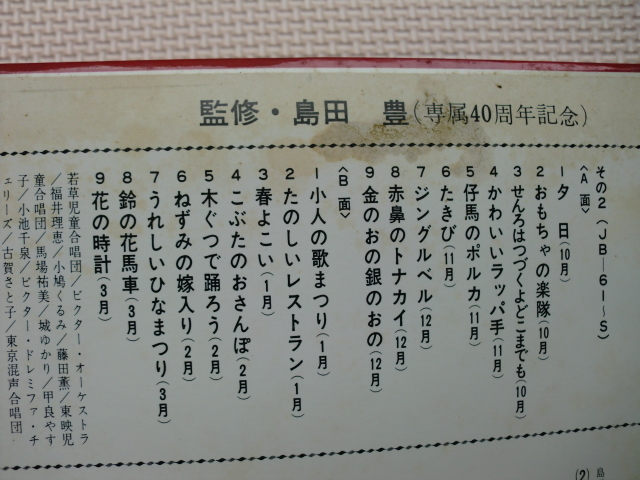 監修・島田 豊(専属40周年記念)
その2(JB—61〜S)
〈A面〉
1夕 日(10月)
2おもちゃの楽隊(10月)
3せんろはつづくよどこまでも(10月)
4かわいいラッパ手(11月)
5仔馬のポルカ(11月)
6たきび(11月)
7ジングルベル(12月)
8赤鼻のトナカイ(12月)
9金のおの銀のおの(12月)
〈B面〉
1小人の歌まつり(1月)
2たのしいレストラン(1月)
3春よこい(1月)
4こぶたのおさんぽ(2月)
5木ぐつで踊ろう(2月)
6ねずみの嫁入り(2月)
7うれしいひなまつり(3月)
8鈴の花馬車(3月)
9花の時計(3月)
若草児童合唱団/ビクター・オーケストラ
/福井理恵/小鳩くるみ/藤田薫/東映児
童合唱団/馬場祐美/城ゆかり/甲良やす
子/小池千泉/ビクター・ドレミファ・チ
ェリーズ/古賀さと子/東京混声合唱団
(2)
島